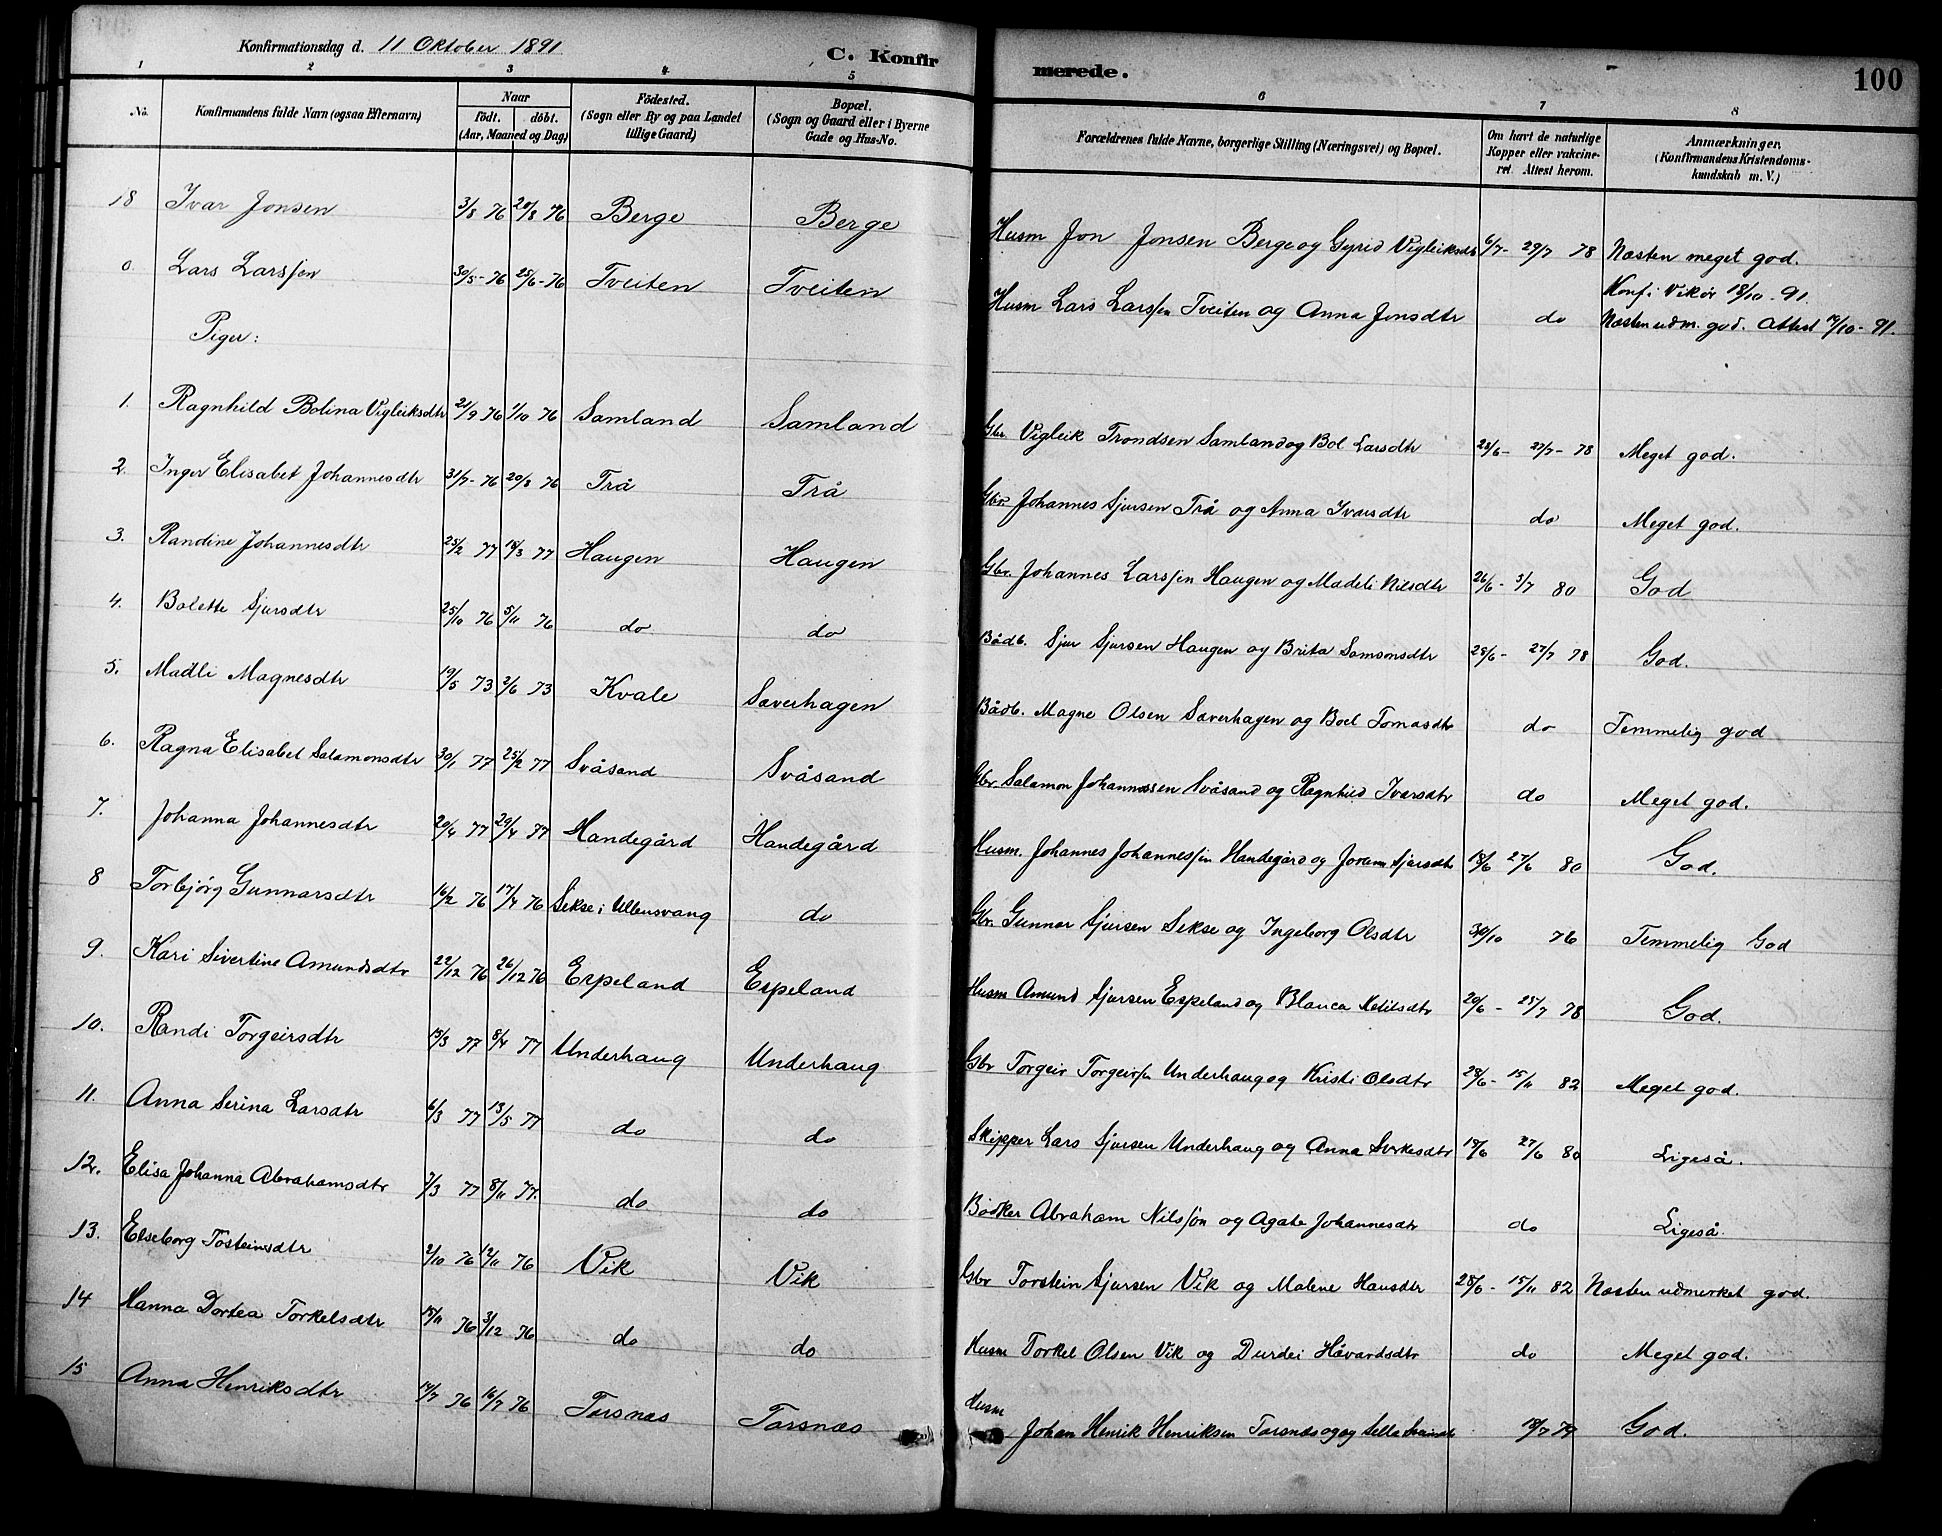 Konfirmationsdag d. 11 Oktober 1891
C. Konfirmerede.
100
1 2 3 4 5 6 7 8
No. Konfirmandens fulde Navn (ogsaa Efternavn) Naar født. døbt. (Aar, Maaned og Dag) Födested. (Sogn eller By og paa Landet tillige Gaard) Bopæl. (Sogn og Gaard eller i Byerne Gade og Hus-No. Forældrenes fulde Navne, borgerlige Stilling (Næringsvei) og Bopæl. Om havt de naturlige Kopper eller vakcineret. Attest herom. Anmærkninger. (Konfirmandens Kristendomskundskab m. V.)
18 Ivar Jonsen 3/8 76 20/8 76 Berge Berge Husm Jon Jonsen Berge og Gyrid Vigleiksdtr 6/7- 29/7 78 Næsten meget god.
0. Lars Larssen 30/5-76 25/6-76 Tveiten Tveiten Husm Lars Larssen Tveiten og Anna Jonsdtr do Konf i Vikör 18/10-91. Næsten udm. god. Attest /10-91.
Piger:
1. Ragnhild Bolina Vigleiksdtr 21/9 76 1/10 76 Samland Samland Gbr. Vigleik Trondsen Samland og Bol Larsdtr 28/6- 27/7-78 Meget god.
2. Inger Elisabet Johannesdtr 31/7-76 20/8 76 Trå Trå Gbr. Johannes Sjursen Trå og Anna Ivarsdtr do Meget god.
3. Randine Johannesdtr 25/2 77 18/3 77 Haugen Haugen Gbr. Johannes Larssen Haugen og Madeli Nilsdtr 26/6- 3/7 80 God
4. Bolette Sjursdtr 25/10 76 5/11 76 do do Bådb. Sjur Sjursen Haugen og Brita Samsonsdtr 28/6- 27/7 78 God.
5. Madli Magnesdtr 19/5 73 2/6 73 Kvale Saverhagen Bådb. Magne Olsen Saverhagen og Boel Tomasdtr do Temmelig god
6. Ragna Elisabet Salamonsdtr 30/1 77 25/2 77 Svåsand Svåsand Gbr. Salamon Johannessen Svåsand og Ragnhild Ivarsdtr do Meget god.
7. Johanna Johannesdtr 20/4 77 29/4 77 Handegård Handegård Husm. Johannes Johannessen Handegård og Joren Sjursdtr 18/6 27/6 80 God.
8 Torbjörg Gunnarsdtr 16/2 76 17/4 76 Sekse i Ullensvang do Gbr. Gunnar Sjursen Sekse og Ingeborg Olsdtr 30/10 76 Temmelig God
9. Kari Sivertine Amundsdtr 22/12 76 26/12 76 Espeland Espeland Husm Amund Sjursen Espeland og Blanca Ketilsdtr 20/6- 25/7 78 God.
10. Randi Torgeirsdtr 15/3 77 8/4 77 Underhaug Underhaug Gbr Torgeir Torgeirsn Underhaug og Kristi Olsdtr 28/6- 15/11 82 Meget god.
11. Anna Serina Larsdtr 6/3 77 13/5 77 do do Skipper Lars Sjursen Underhaug og Anna Svrkesdtr 18/6 27/6 80 Ligeså.
12. Elisa Johanna Abrahamsdtr 7/3 77 8/11 77. do do Bödker Abraham Nilssön og Agate Johannesdtr do Ligeså.
13. Elseborg Tosteinsdtr 2/10 76 12/11 76 Vik Vik Gbr Torstein Sjursen Vik og Malene Hansdtr 28/6- 15/11 82 Næsten udmerket god.
14 Hanna Dortea Torkelsdtr 15/11 76 3/12 76 do do Husm Torkel Olsen Vik og Durdei Håvardsdtr do Meget god.
15 Anna Henriksdtr 14/7 76 16/7 76 Torsnæs Torsnæs Husm Johan Henrik Henriksen Torsnæs og Sella 18/7 79 God.